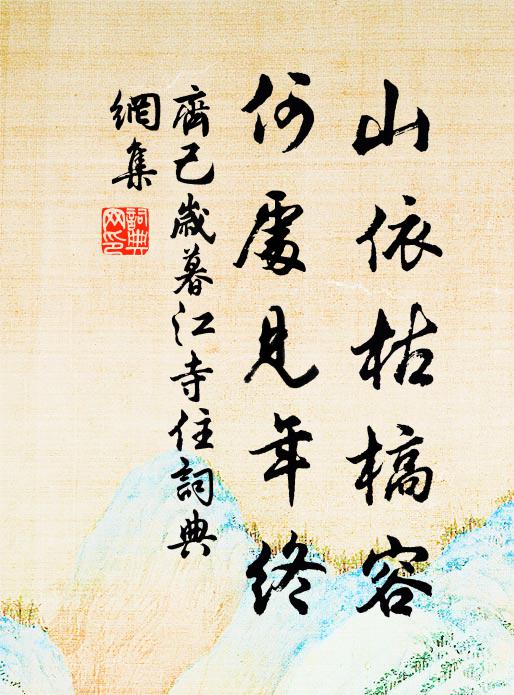 山依枯槁容
何處見年終
齊己歲暮江寺住詞典
網集
詞典
网印